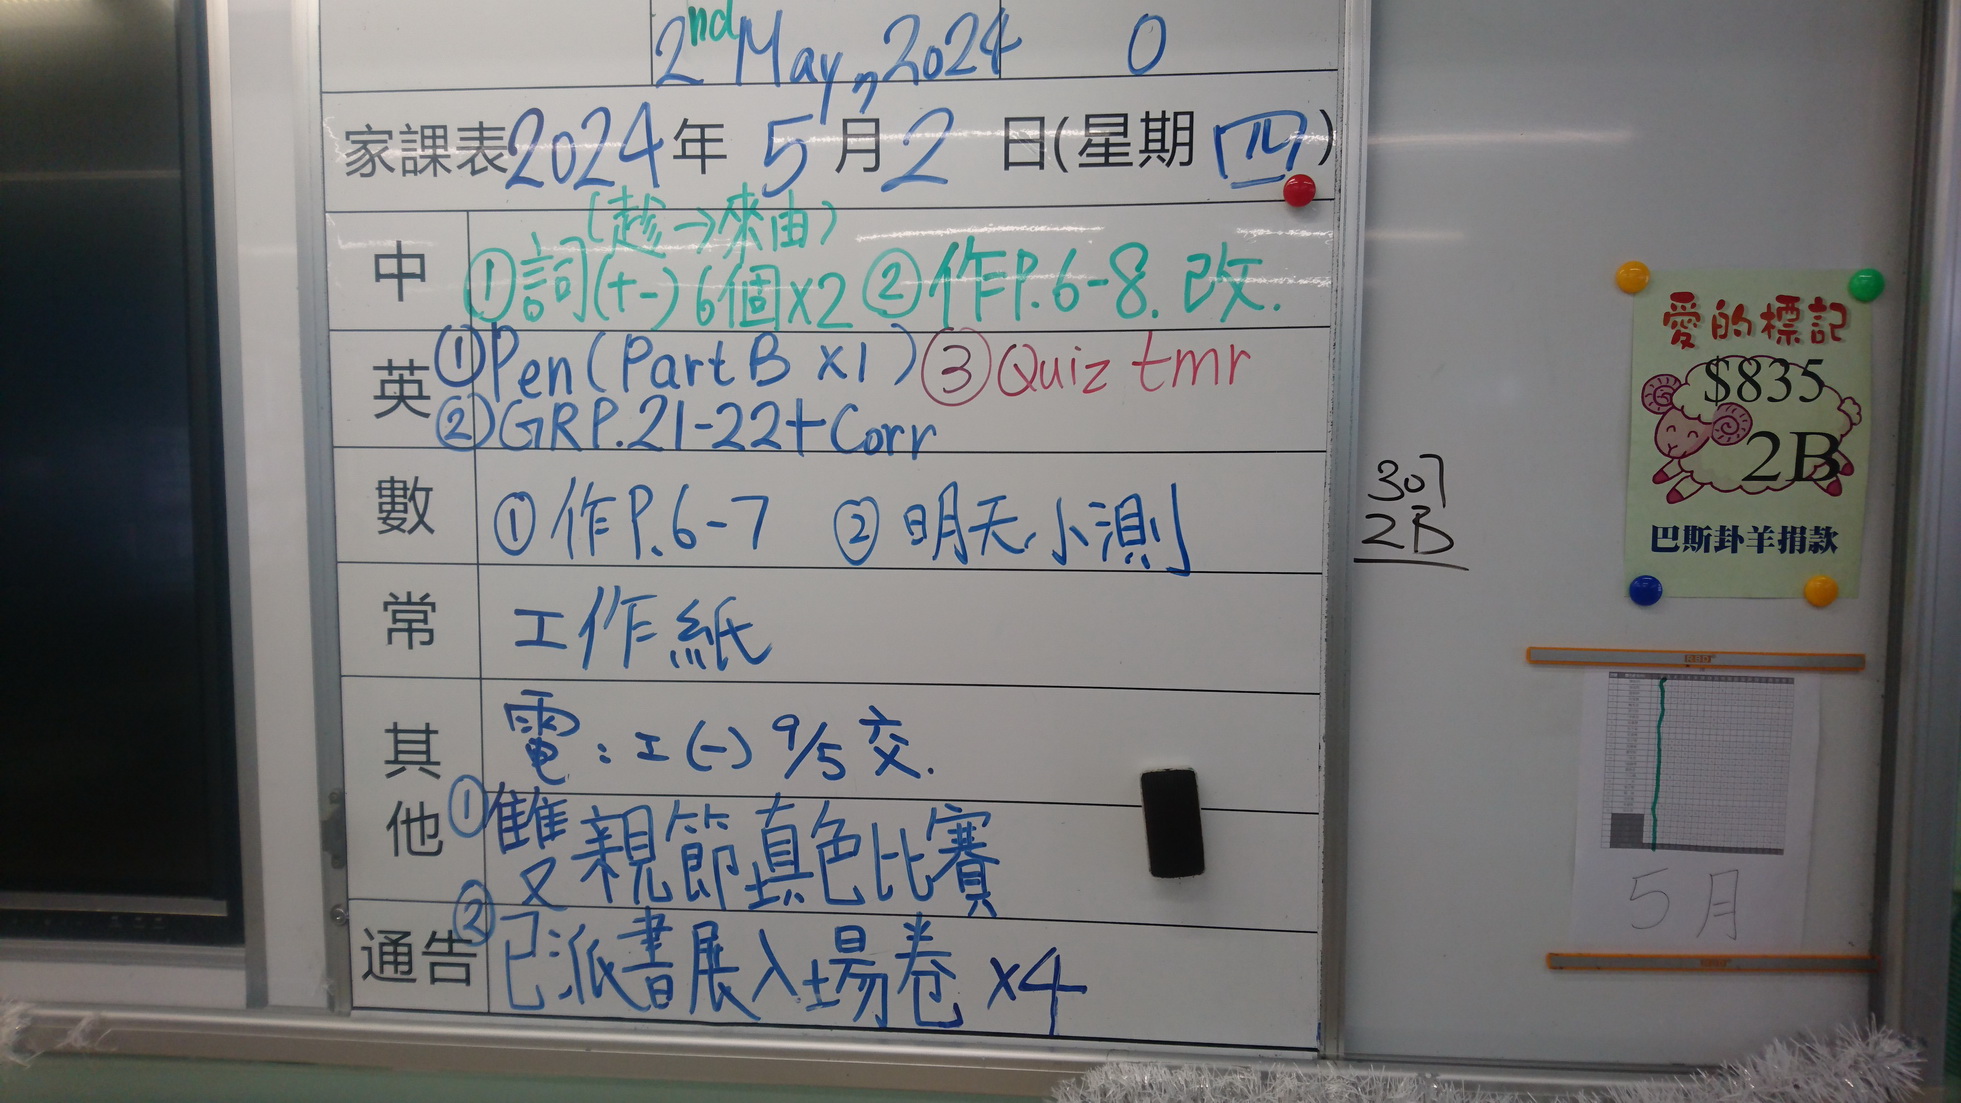 2nd May, 2024 0
家課表 2024 年 5 月 2 日(星期 四)
(趁→來由)
中 ①詞(十一) 6個x2 ②作P.6-8. 改.
英 ①Pen(Part B x1) ③Quiz tmr
②GRP.21-22+Corr
數 ①作P.6-7 ②明天小測
常 工作紙
其他 電:工(一) 9/5交.
①雙親節填色比賽
通告 ②已派書展入場卷 x4
307
2B
愛的標記
$835
2B
巴斯卦羊捐款
5月